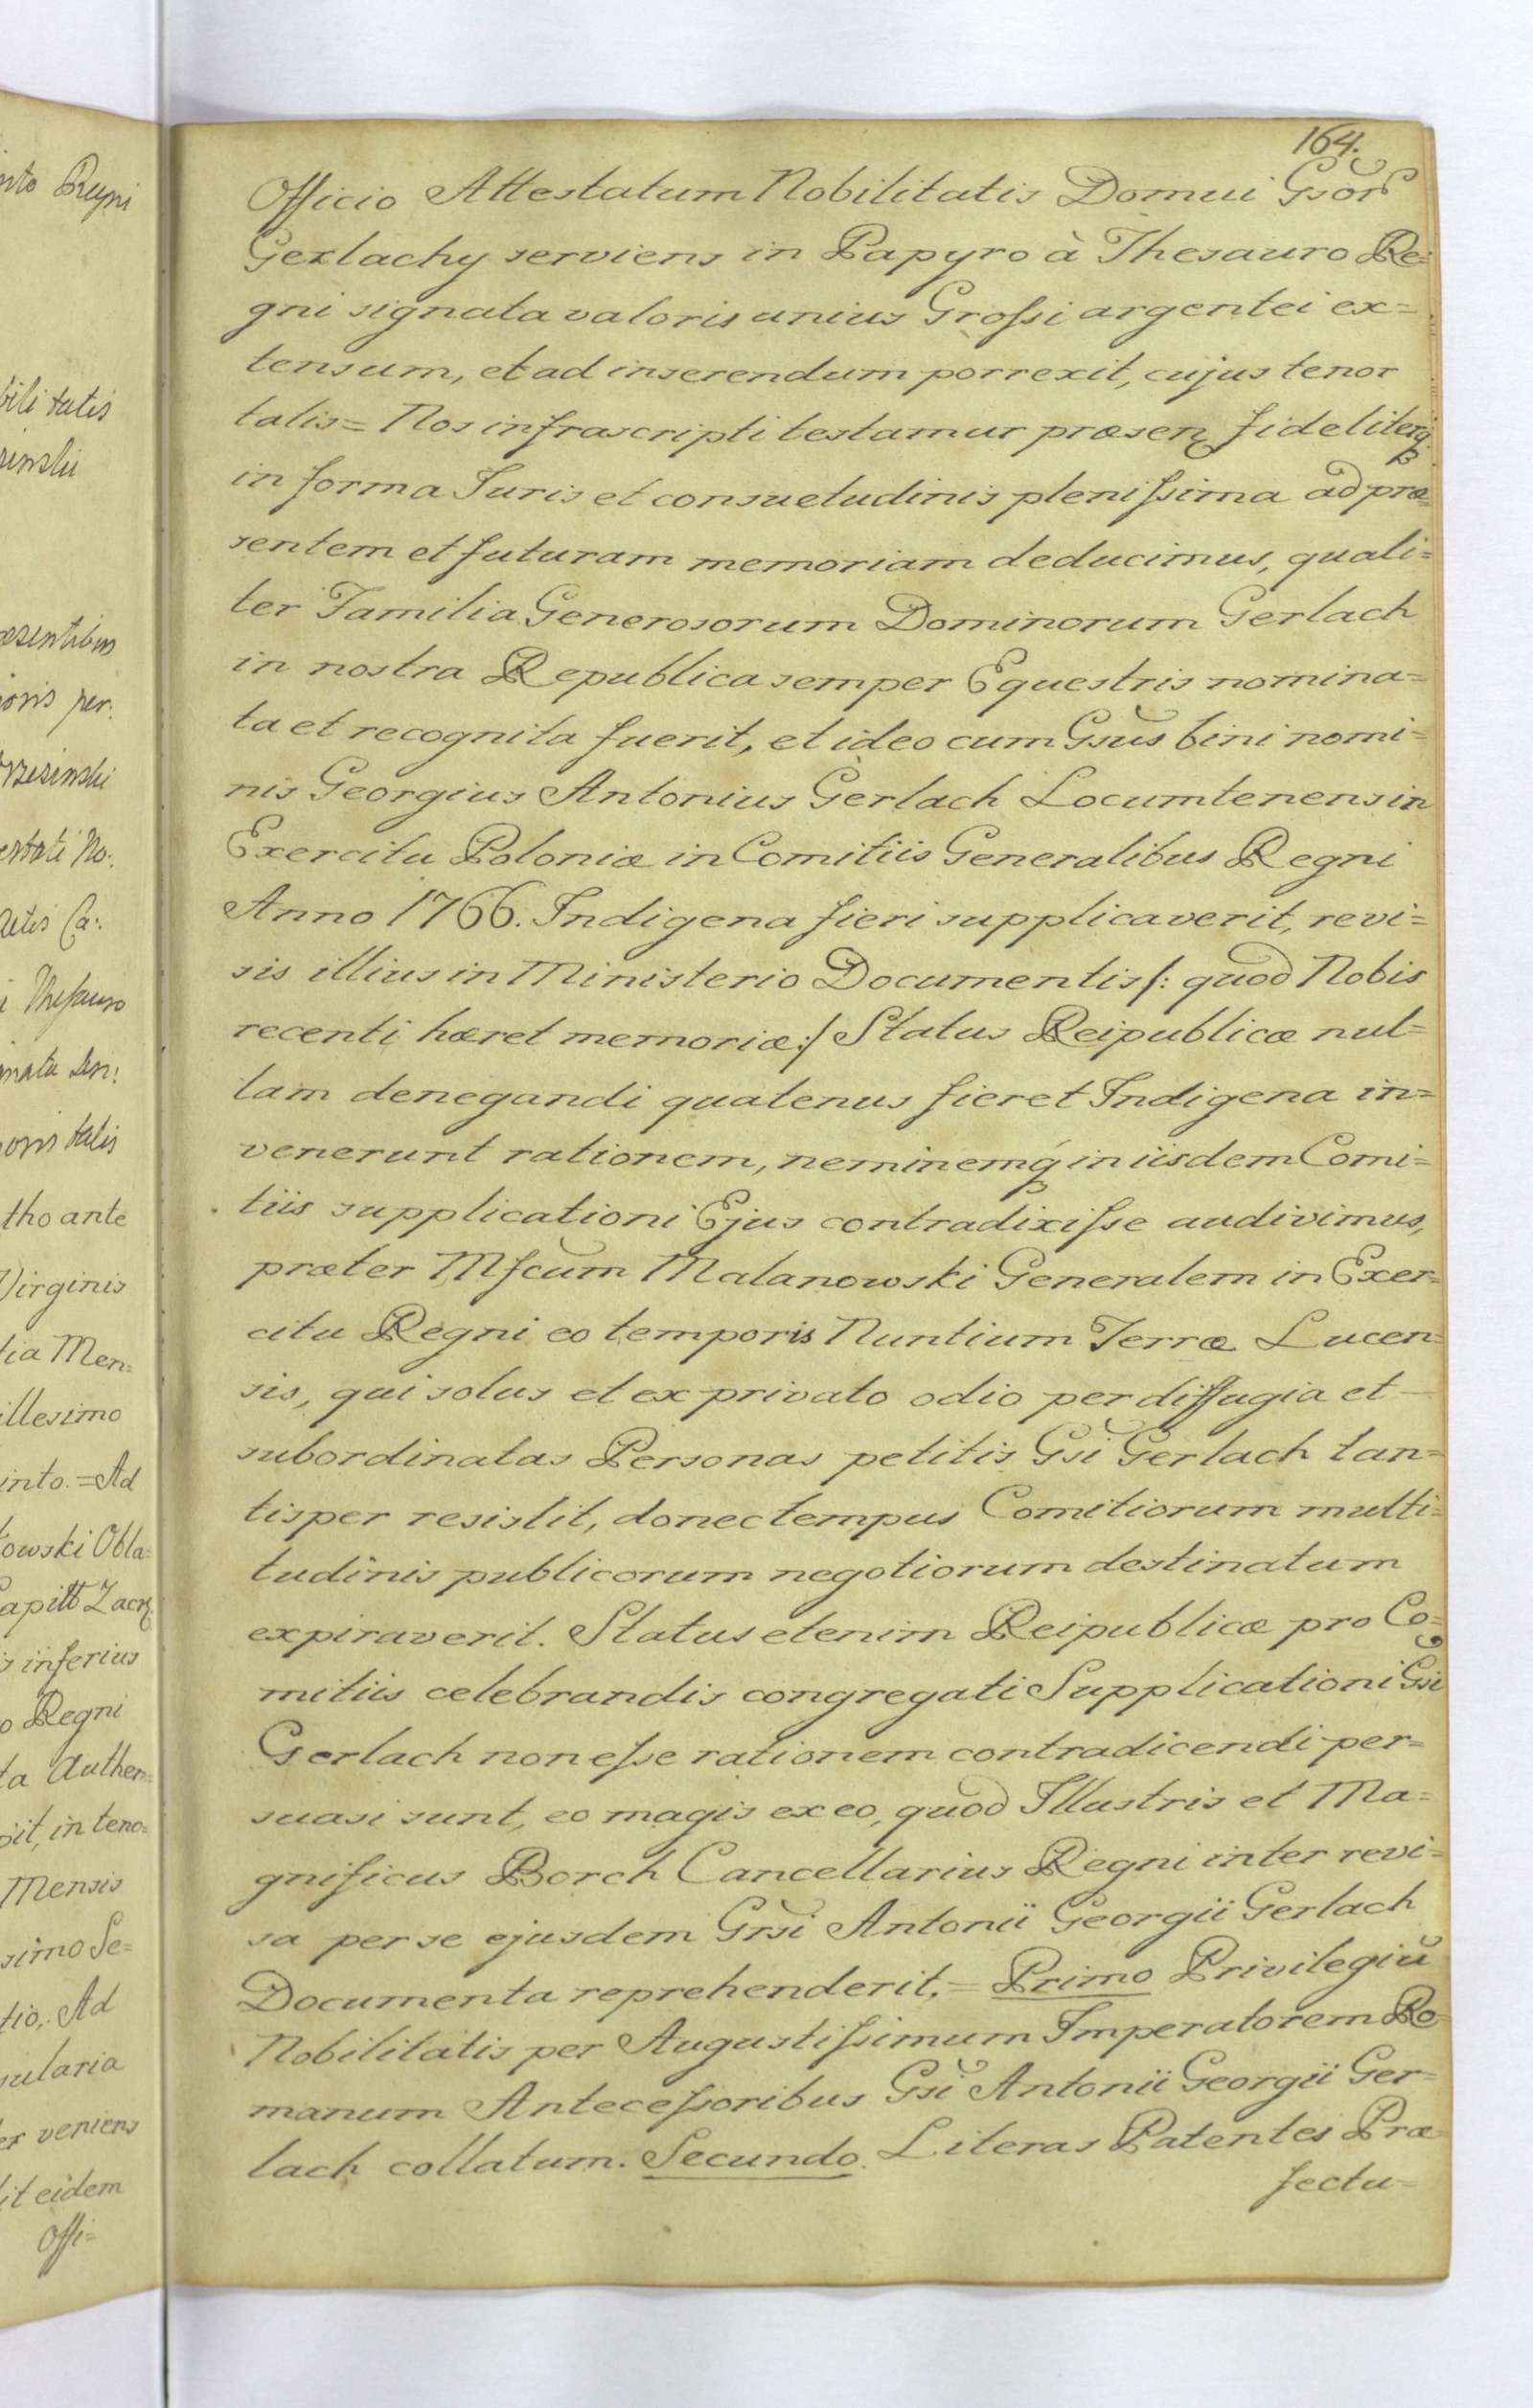 nto Regni
bilitatis
rinskii
æsentibus
ioris per:
rzesinski
estati No:
atis Ca:
i Thesauro
onis talis
tho ante
Virginis
tia Men=
illesimo
into.=Ad
kowski Obla=
apitt Zacz
is inferius
o Regni
ta Authen=
sit, in teno=
Mensis
simo Se=
tio, Ad
sularia
er veniens
it eidem
Offi=
164.
Officio Attestatum Nobilitatis Domui Gsor
Gerlachy serviens in Papyro à Thesauro Re=
gni signata valoris unius Grossi argentei ex=
tensum, et ad inserendum porrexit, cujus tenor
talis= Nos infrascripti testamur præsen fideliterq
in forma Juris et consuetudinis plenissima ad præ=
sentem et futuram memoriam deducimus, quali=
ter Familia Generosorum Dominorum Gerlach
in nostra Republica semper Equestris nomina=
ta et recognita fuerit, et ideo cum Gsus bini nomi=
nis Georgius Antonius Gerlach Locumtenens in
Exercitu Poloniæ in Comitiis Generalibus Regni
Anno 1766. Indigena fieri supplicaverit, revi=
sis illius in Ministerio Documentis /: quod Nobis
recenti hæret memoriæ:/ Status Reipublicæ nul=
lam denegandi quatenus fieret Indigena in=
venerunt rationem, neminemq in iisdem Comi=
tiis supplicationi Ejus contradixisse audivimus,
præter Mscum Malanowski Generalem in Exer=
citu Regni eo temporis Nuntium Terræ Lucen=
sis, qui solus et ex privato odio per diffugia et
subordinatas Personas petitis Gsi Gerlach tan=
tisper resistit, donec tempus Comitiorum multi=
tudinis publicorum negotiorum destinatum
expiraverit. Status etenim Reipublicæ pro Co=
mitiis celebrandis congregati Supplicationi Gsi
Gerlach non esse rationem contradicendi per=
suasi sunt, eo magis ex eo, quod Illustris et Ma=
gnificus Borch Cancellarius Regni inter revi=
sa per se ejusdem Grsi Antonii Georgii Gerlach
Documenta reprehenderit,= Primo Privilegiũ
Nobilitatis per Augustissimum Imperatorem Ro=
manum Antecessoribus Gsi Antonii Georgii Ger=
lach collatum. Secundo. Literas Patentes Præ=
fectu=